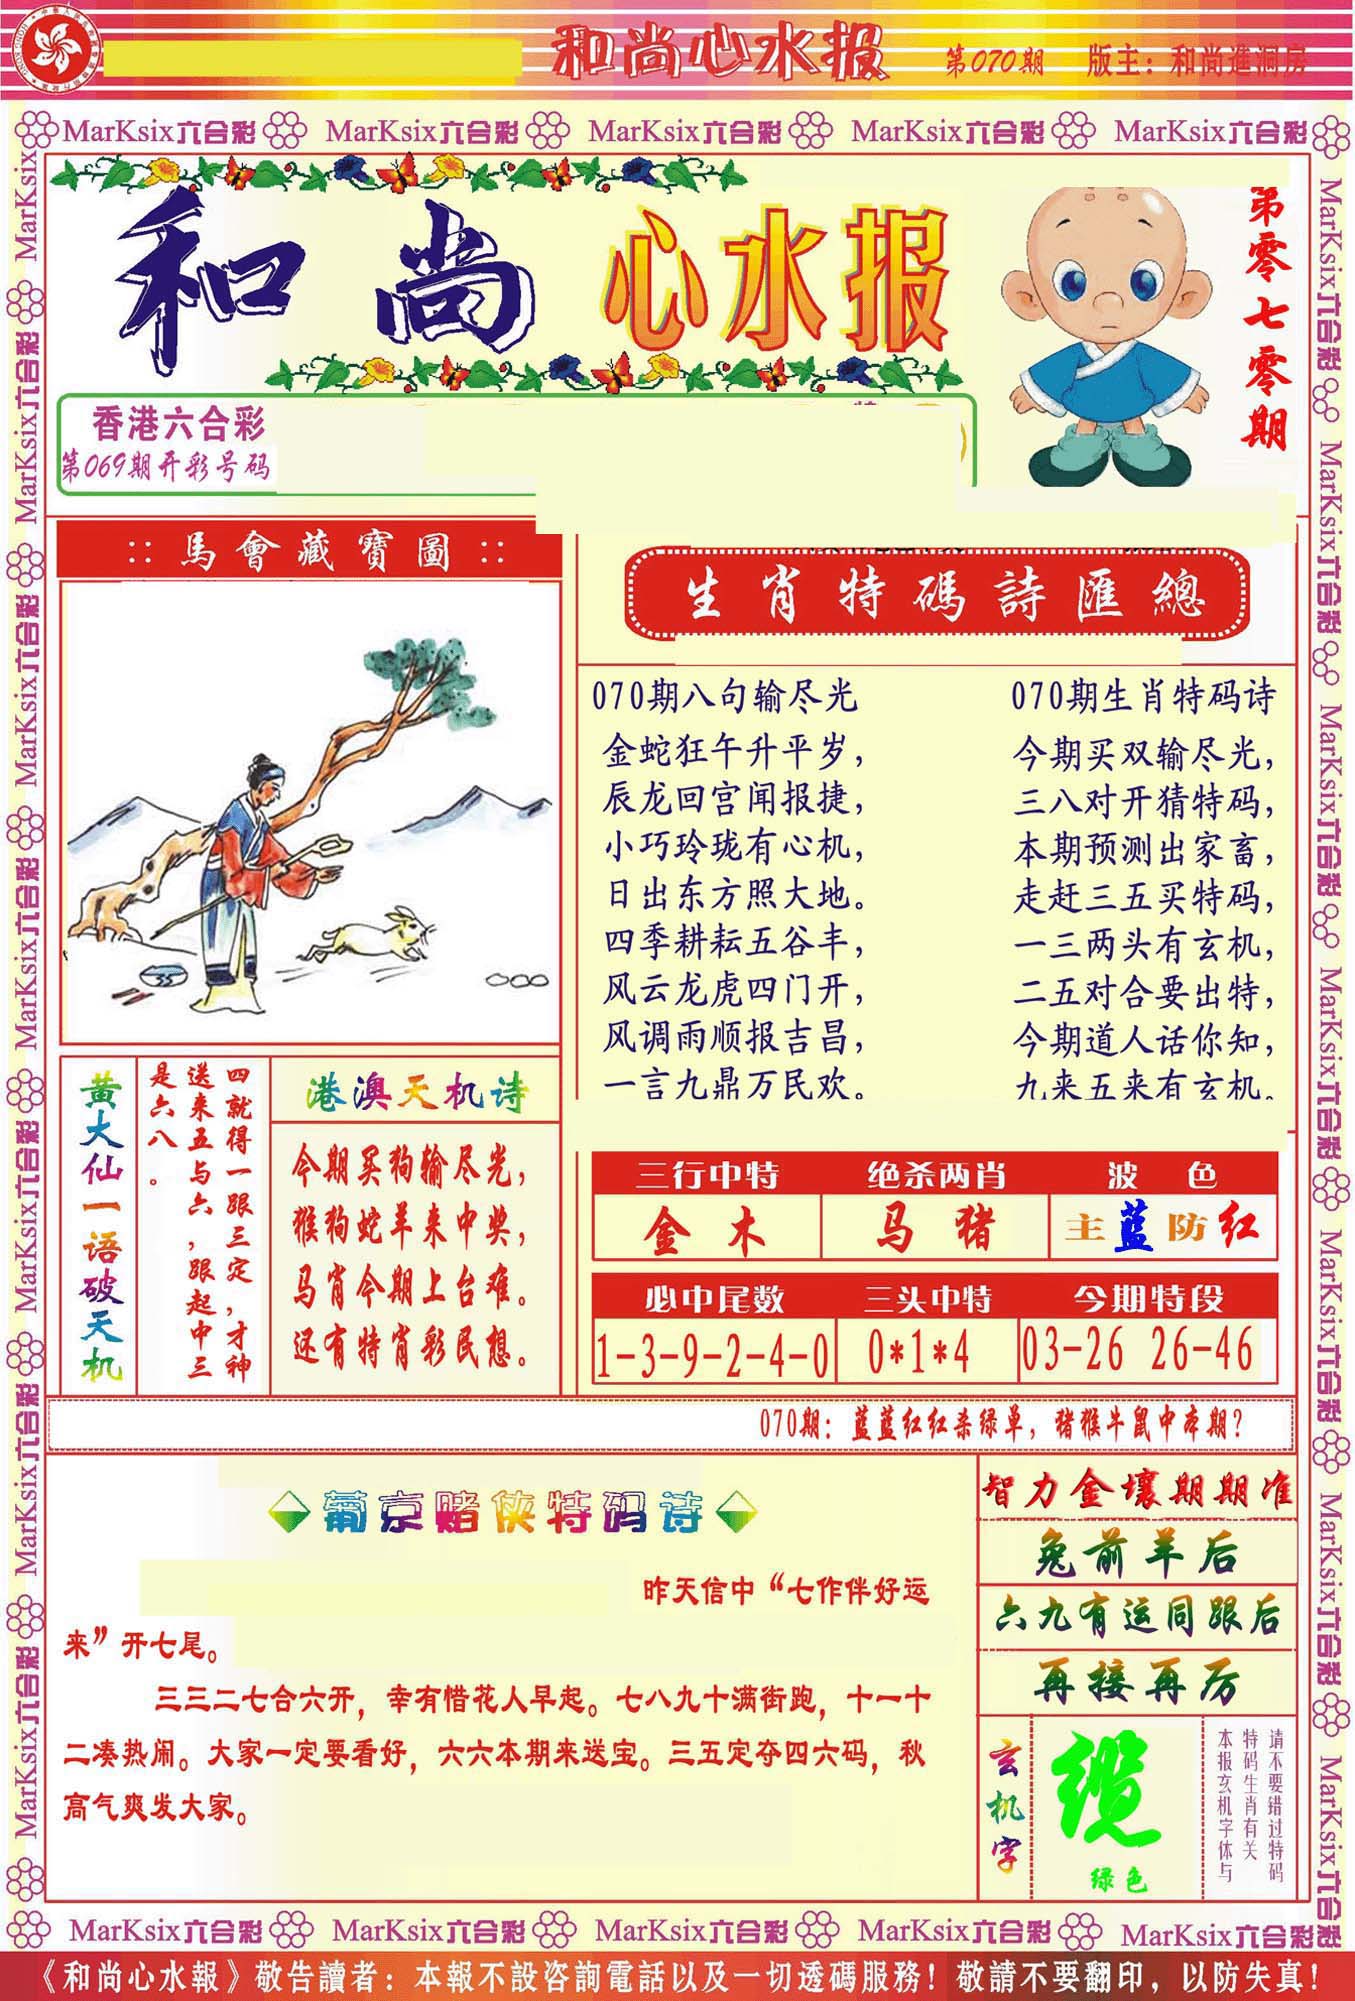 和尚心水报 第070期 版主：和尚進洞房
MarKsix六合彩 MarKsix六合彩 MarKsix六合彩 MarKsix六合彩 MarKsix六合彩
和尚心水报
第零七零期
香港六合彩
第069期开彩号码
::馬會藏寶圖::
生肖特碼詩匯總
070期八句输尽光
金蛇狂午升平岁，
辰龙回宫闻报捷，
小巧玲珑有心机，
日出东方照大地。
四季耕耘五谷丰，
风云龙虎四门开，
风调雨顺报吉昌，
一言九鼎万民欢。
070期生肖特码诗
今期买双输尽光，
三八对开猜特码，
本期预测出家畜，
走赶三五买特码，
一三两头有玄机，
二五对合要出特，
今期道人话你知，
九来五来有玄机。
黄大仙一语破天机
四就得一跟三定，才神
送来五与六，跟起中三
是六八。
港澳天机诗
今期买狗输尽光，
猴狗蛇羊来中奖，
马肖今期上台难。
还有特肖彩民想。
三行中特 绝杀两肖 波色
金木 马猪 主蓝防红
必中尾数 三头中特 今期特段
1-3-9-2-4-0 0*1*4 03-26 26-46
070期：蓝蓝红红杀绿单，猪猴牛鼠中本期？
葡京赌侠特码诗
昨天信中“七作伴好运
来”开七尾。
三三二七合六开，幸有惜花人早起。七八九十满街跑，十一十
二凑热闹。大家一定要看好，六六本期来送宝。三五定夺四六码，秋
高气爽发大家。
智力金壤期期准
兔前羊后
六九有运同跟后
再接再厉
玄机字
缆
绿色
请不要错过特码
特码生肖有关
本报玄机字体与
MarKsix六合彩 MarKsix六合彩 MarKsix六合彩 MarKsix六合彩 MarKsix六合彩
《和尚心水報》敬告讀者：本報不設咨詢電話以及一切透碼服務！敬請不要翻印，以防失真！